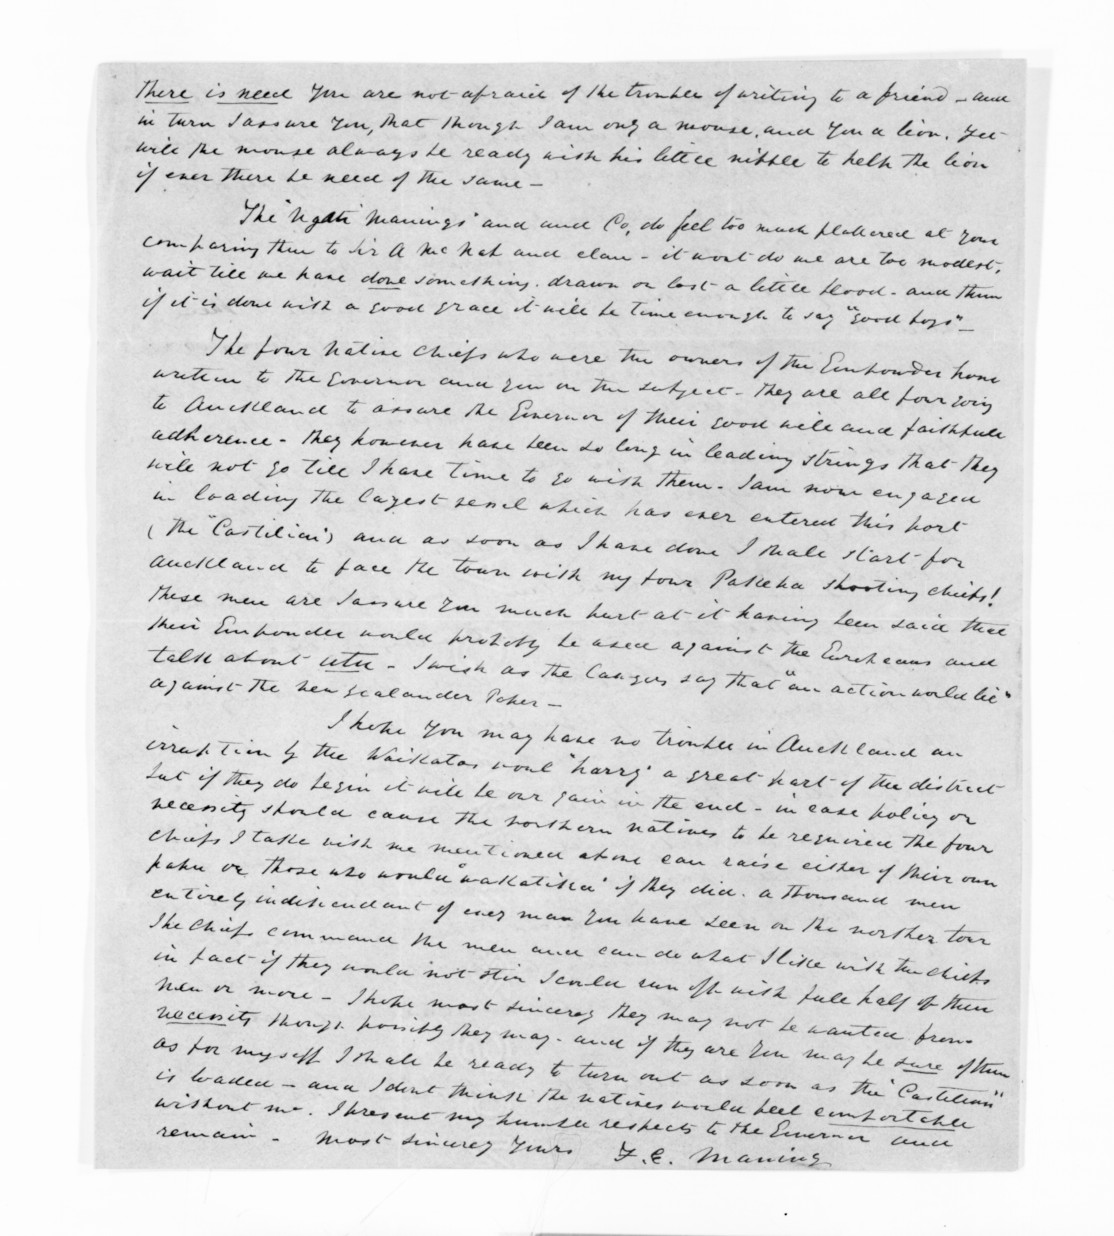 there is need you are not afraid of the trouble of writing to a friend - and
in turn I assure you, that though I am only a mouse, and you a lion. yet
will the mouse always be ready with his little nibble to help the lion
if ever there be need of the same -
The "Ngati Manings" and and Co, do feel too much flattered at your
comparing them to Sir A McNab and clan - it wont do we are too modest,
wait till we have done something. drawn or lost a little blood - and then
if it is done with a good grace it will be time enough to say "good boys" -
The four native chiefs who were the owners of the Gunpowder have
written to the Governor and you on the subject - they are all four going
to Auckland to assure the Governor of their good will and faithfull
adherence - they however have been so long in leading strings that they
will not go till I have time to go with them - I am now engaged
in loading the largest vessel which has ever entered this port
(the "Castilian") and as soon as I have done I shall start for
Auckland to face the town with my four Pakeha shooting chiefs!
these men are I assure you much hurt at it having been said that
their Gunpowder would probably be used against the Europeans and
talk about utu - I wish as the Lawyers say that "an action would lie"
against the New Zealander Paper -
I hope you may have no trouble in Auckland an
irruption by the Waikatos woul "harry" a great part of the district
but if they do begin it will be our gain in the end - in case policy or
necessity should cause the northern natives to be required the four
chiefs I take with me mentioned above can raise either of their own
hapu or those who would "wakatika" if they did. a thousand men
entirely independant of every man you have seen on the norther tour
The Chiefs command the men and can do what I like with the chiefs
in fact if they would not stir I could run off with full half of their
men or more - I hope most sincerely they may not be wanted from
necessity though possibly they may - and if they are you may be sure of them
as for myself I shall be ready to turn out as soon as the "Castilian"
is loaded - and I dont think the natives would feel comfortable
without me. I present my humble respects to the Governor and
remain - most sincerely yours F. E. Maning